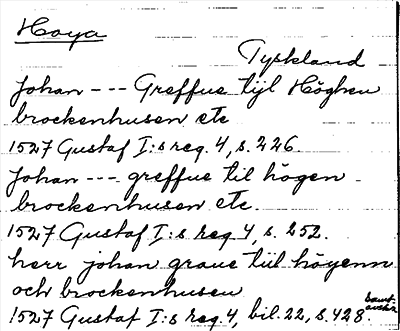 Hoya
Tyskland
Johan --- Greffue tijl Höghen
brockenhusen etc
1527 Gustaf I:s reg. 4, s. 226.
Johan --- greffue til högen
brockenhusen etc.
1527 Gustaf I:s reg 4, s. 252.
herr johan graue tiil höyenn
och brockenhusen
1527 Gustaf I:s reg. 4, bil. 22, s. 428.